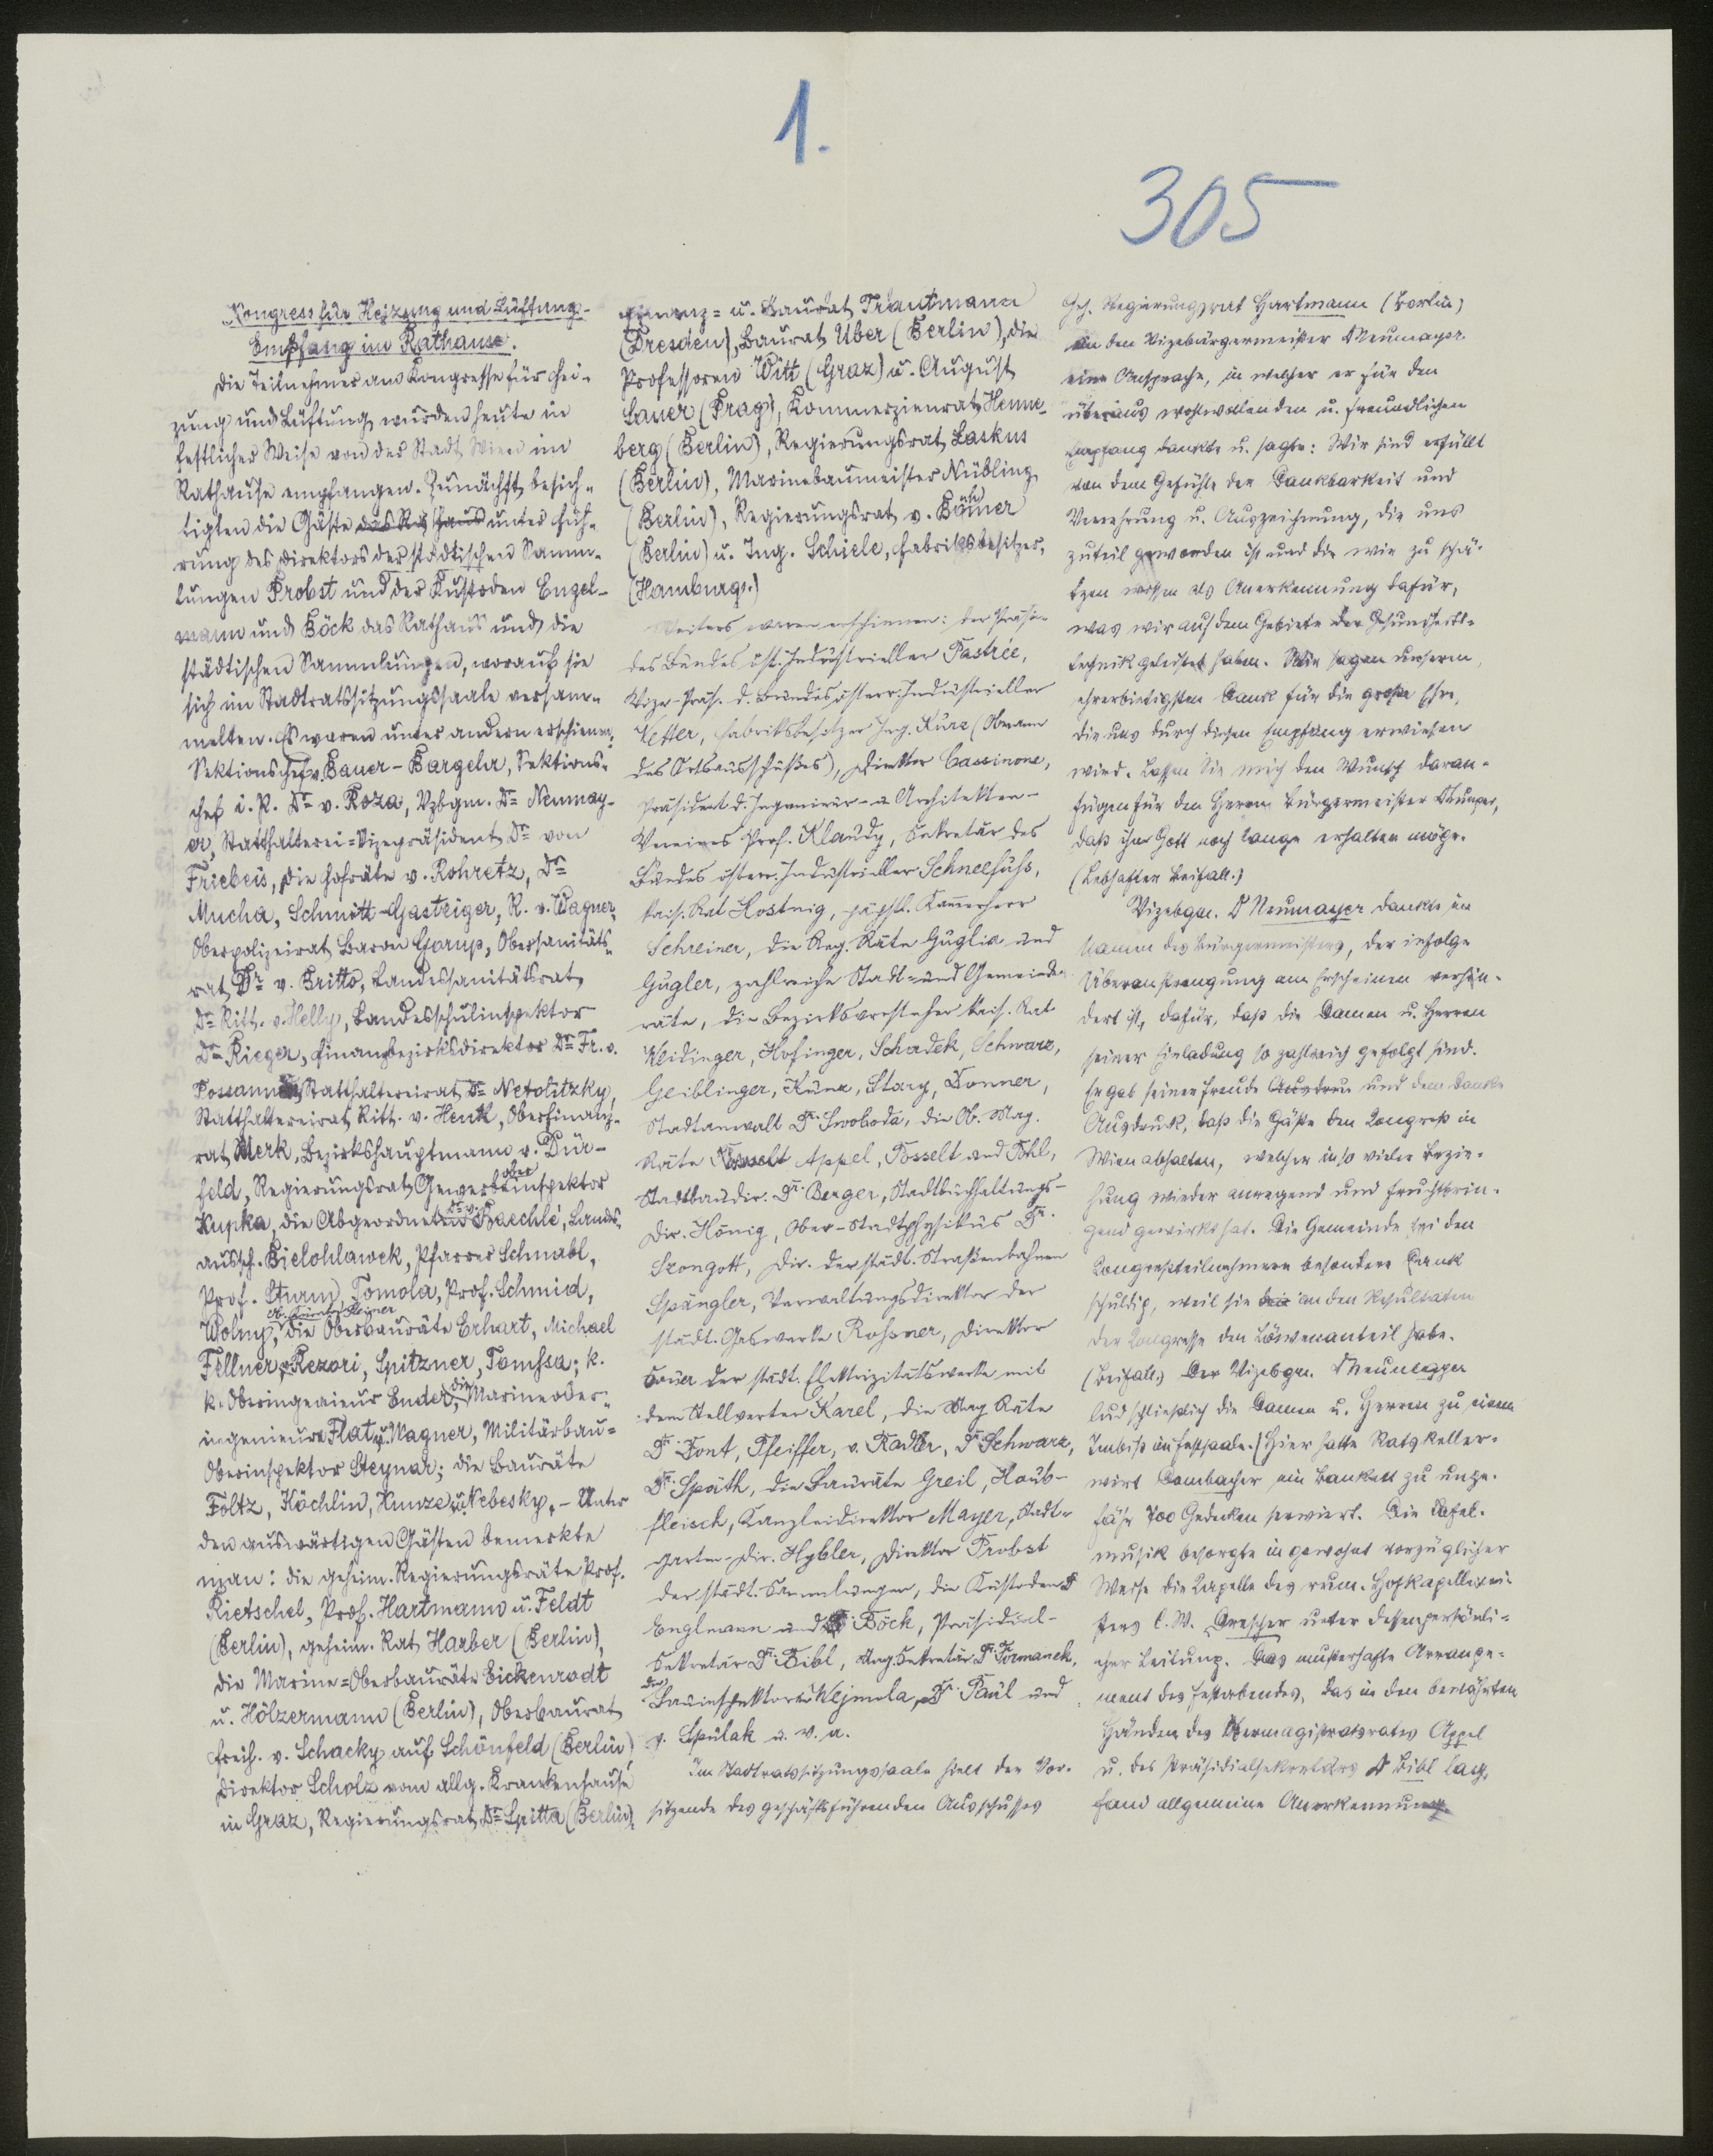 1.
305
Kongress für Heizung und Lüftung.-
Empfang im Rathause.
Die Teilnehmer am Kongresse für Hei-
zung und Lüftung wurden heute in
festlicher Weise von der Stadt Wien im
Rathause empfangen. Zunächst besich-
tigten die Gäste das Rathaus unter Füh-
rung des Direktors der städtischen Samm-
lungen Probst und der Kustoden Engel-
mann und Böck das Rathaus und die
städtischen Sammlungen, worauf sie
sich im Stadtratssitzungssaale versam-
melten. Es waren unter andern erschienen:
Sektionschef v. Bauer-Bargehr, Sektions-
chef i. P. Dr v. Roza, Vzbgm. Dr Neumay-
er, Statthalterei-Vizepräsident Dr von
Friebeis, die Hofräte v. Rohretz, Dr
Mucha, Schmitt-Gasteiger, R. v. Wagner,
Oberpolizeirat Baron Gorup, Obersanitäts-
rat Dr v. Britto, Landessanitätsrat
Dr Ritt. v. Helly, Landesschulinspektor
Dr Rieger, Finanzbezirksdirektor Dr Fr. v.
Possanner, Statthaltereirat Dr Netolitzky,
Statthaltereirat Ritt. v. Henkl, Oberfinanz-
rat Merk, Bezirkshauptmann v. Dür-
feld, Regierungsrat Gewerbeoberinspektor
Kupka, die Abgeordneten Baechlé, Landes-
aussch. Bielohlawek, Pfarrer Schnabl,
Prof. Sturm, Tomola, Prof. Schmid,
Wolny, Ob. Kurat Steiner, die Oberbauräte Erhart, Michael
Fellner, Rezori, Spitzner, Tomssa; k.
k. Oberingenieur Ender, die Marineober-
ingenieure Flat u. Wagner, Militärbau-
Oberinspektor Steynar; die Bauräte
Foltz, Köchlin, Kunze u. Nebesky. - Unter
den auswärtigen Gästen bemerkte
man: die geheim. Regierungsräte Prof.
Rietschel, Prof. Hartmann u. Feldt
(Berlin), geheim. Rat Harber (Berlin),
die Marine-Oberbauräte Eickenrodt
u. Hölzermann (Berlin), Oberbaurat
Freih. v. Schacky auf Schönfeld (Berlin),
Direktor Scholz vom allg. Krankenhause
in Graz, Regierungsrat Dr Spitta (Berlin),
Finanz- u. Baurat Trautmann
(Dresden), Baurat Uber (Berlin), die
Professoren Witt (Graz) u. August
Sauer (Prag), Kommerzienrat Henne-
berg (Berlin), Regierungsrat Laskus
(Berlin), Marinebaumeister Nübling
(Berlin), Regierungsrat v. Böhmer
(Berlin) u. Ing. Schiele, Fabriksbesitzer,
(Hamburg.)
Weiters waren erschienen: der Präsi-
des Bundes öst. Industrieller Pastrée,
Vize-Präs. d. Bundes österr. Industrieller
Vetter, Fabriksbesitzer Ing. Kurz (Obmann
des Ortsausschußes), Direktor Cassinone,
Präsident d. Ingenieur- u. Architekten-
Vereines Prof. Klaudy, Sekretär des
Bundes österr. Industrieller Schneefuhs,
kais. Rat Hostnig, päpstl. Kammerherr
Schreiner, die Reg. Räte Guglia und
Gugler, zahlreiche Stadt- und Gemeinde-
räte, die Bezirksvorsteher kais. Rat
Weidinger, Hofinger, Schadek, Schwarz,
Geiblinger, Kunz, Stary, Donner,
Stadtanwalt Dr. Swoboda, die Ob. Mag.
Räte Appel, Posselt und Pohl,
Stadtbaudir. Dr. Berger, Stadtbuchhaltungs-
dir. Hönig, Ober-Stadtphysikus Dr.
Szongott, Dir. der städt. Straßenbahnen
Spängler, Verwaltungsdirektor der
städt. Gaswerke Rossner, Direktor
Sauer der städt. Elektrizitätswerke mit
dem Stellverter Karel, die Mag. Räte
Dr. Pont, Pfeiffer, v. Radler, Dr. Schwarz,
Dr. Späth, die Bauräte Greil, Haub-
fleisch, Kanzleidirektor Mayer, Stadt-
garten-Dir. Hybler, Direktor Probst
der städt. Sammlungen, die Kustoden
Englmann und Böck, Präsidial-
Sekretär Dr. Bibl, Mag. Sekretär Dr. Formanek,
die Bauinspektoren Wejmola, Dr. Paul und
v. Spulak u. v. a.
Im Stadtratssitzungssaale hielt der Vor-
sitzende des geschäftsführenden Ausschusses
Geh. Regierungsrat Hartmann (Berlin)
an den Vizebürgermeister Dr Neumayer
eine Ansprache, in welcher er für den
überaus wohlwollenden u. freundlichen
Empfang dankte u. sagte: Wir sind erfüllt
von dem Gefühle der Dankbarkeit und
Verehrung u. Auszeichnung, die uns
zuteil geworden ist und die wir zu schä-
tzen wissen als Anerkennung dafür,
was wir auf dem Gebiete der Gesundheits-
technik geleistet haben. Wir sagen unseren
ehrerbietigsten Dank für die große Ehre,
die uns durch diesen Empfang erwiesen
wird. Lassen Sie mich den Wunsch daran-
fügen für den Herrn Bürgermeister Dr Lueger,
daß ihn Gott noch lange erhalten möge.
(Lebhafter Beifall.)
Vizebgm. Dr Neumayer dankte im
Namen des Bürgermeisters, der infolge
Überanstrengung am Erscheinen verhin-
dert ist, dafür, daß die Damen u. Herren
seiner Einladung so zahlreich gefolgt sind.
Er gab seiner Freude und dem Danke
Ausdruck, daß die Gäste den Kongreß in
Wien abhalten, welcher in so vieler Bezie-
hung wieder anregend und fruchtbrin-
gend gewirkt hat. Die Gemeinde sei den
Kongreßteilnehmern besonderen Dank
schuldig, weil sie an den Resultaten
der Kongresse den Löwenanteil habe.
(Beifall.) Der Vizebgm. Dr Neumayer
lud schließlich die Damen u. Herren zu einem
Imbiß im Festsaale. Hier hatte Ratskeller-
wirt Dombacher ein Bankett zu unge-
fähr 700 Gedecken serviert. Die Tafel-
musik besorgte in gewohnt vorzüglicher
Weise die Kapelle des rum. Hofkapellmei-
sters C. W. Drescher unter dessen persönli-
cher Leitung. Das musterhafte Arrange-
ment des Festabendes, das in den bewährten
Händen des Obermagistratsrates Appel
u. des Präsidialsekretärs Dr Bibl lag,
fand allgemeine Anerkennung.